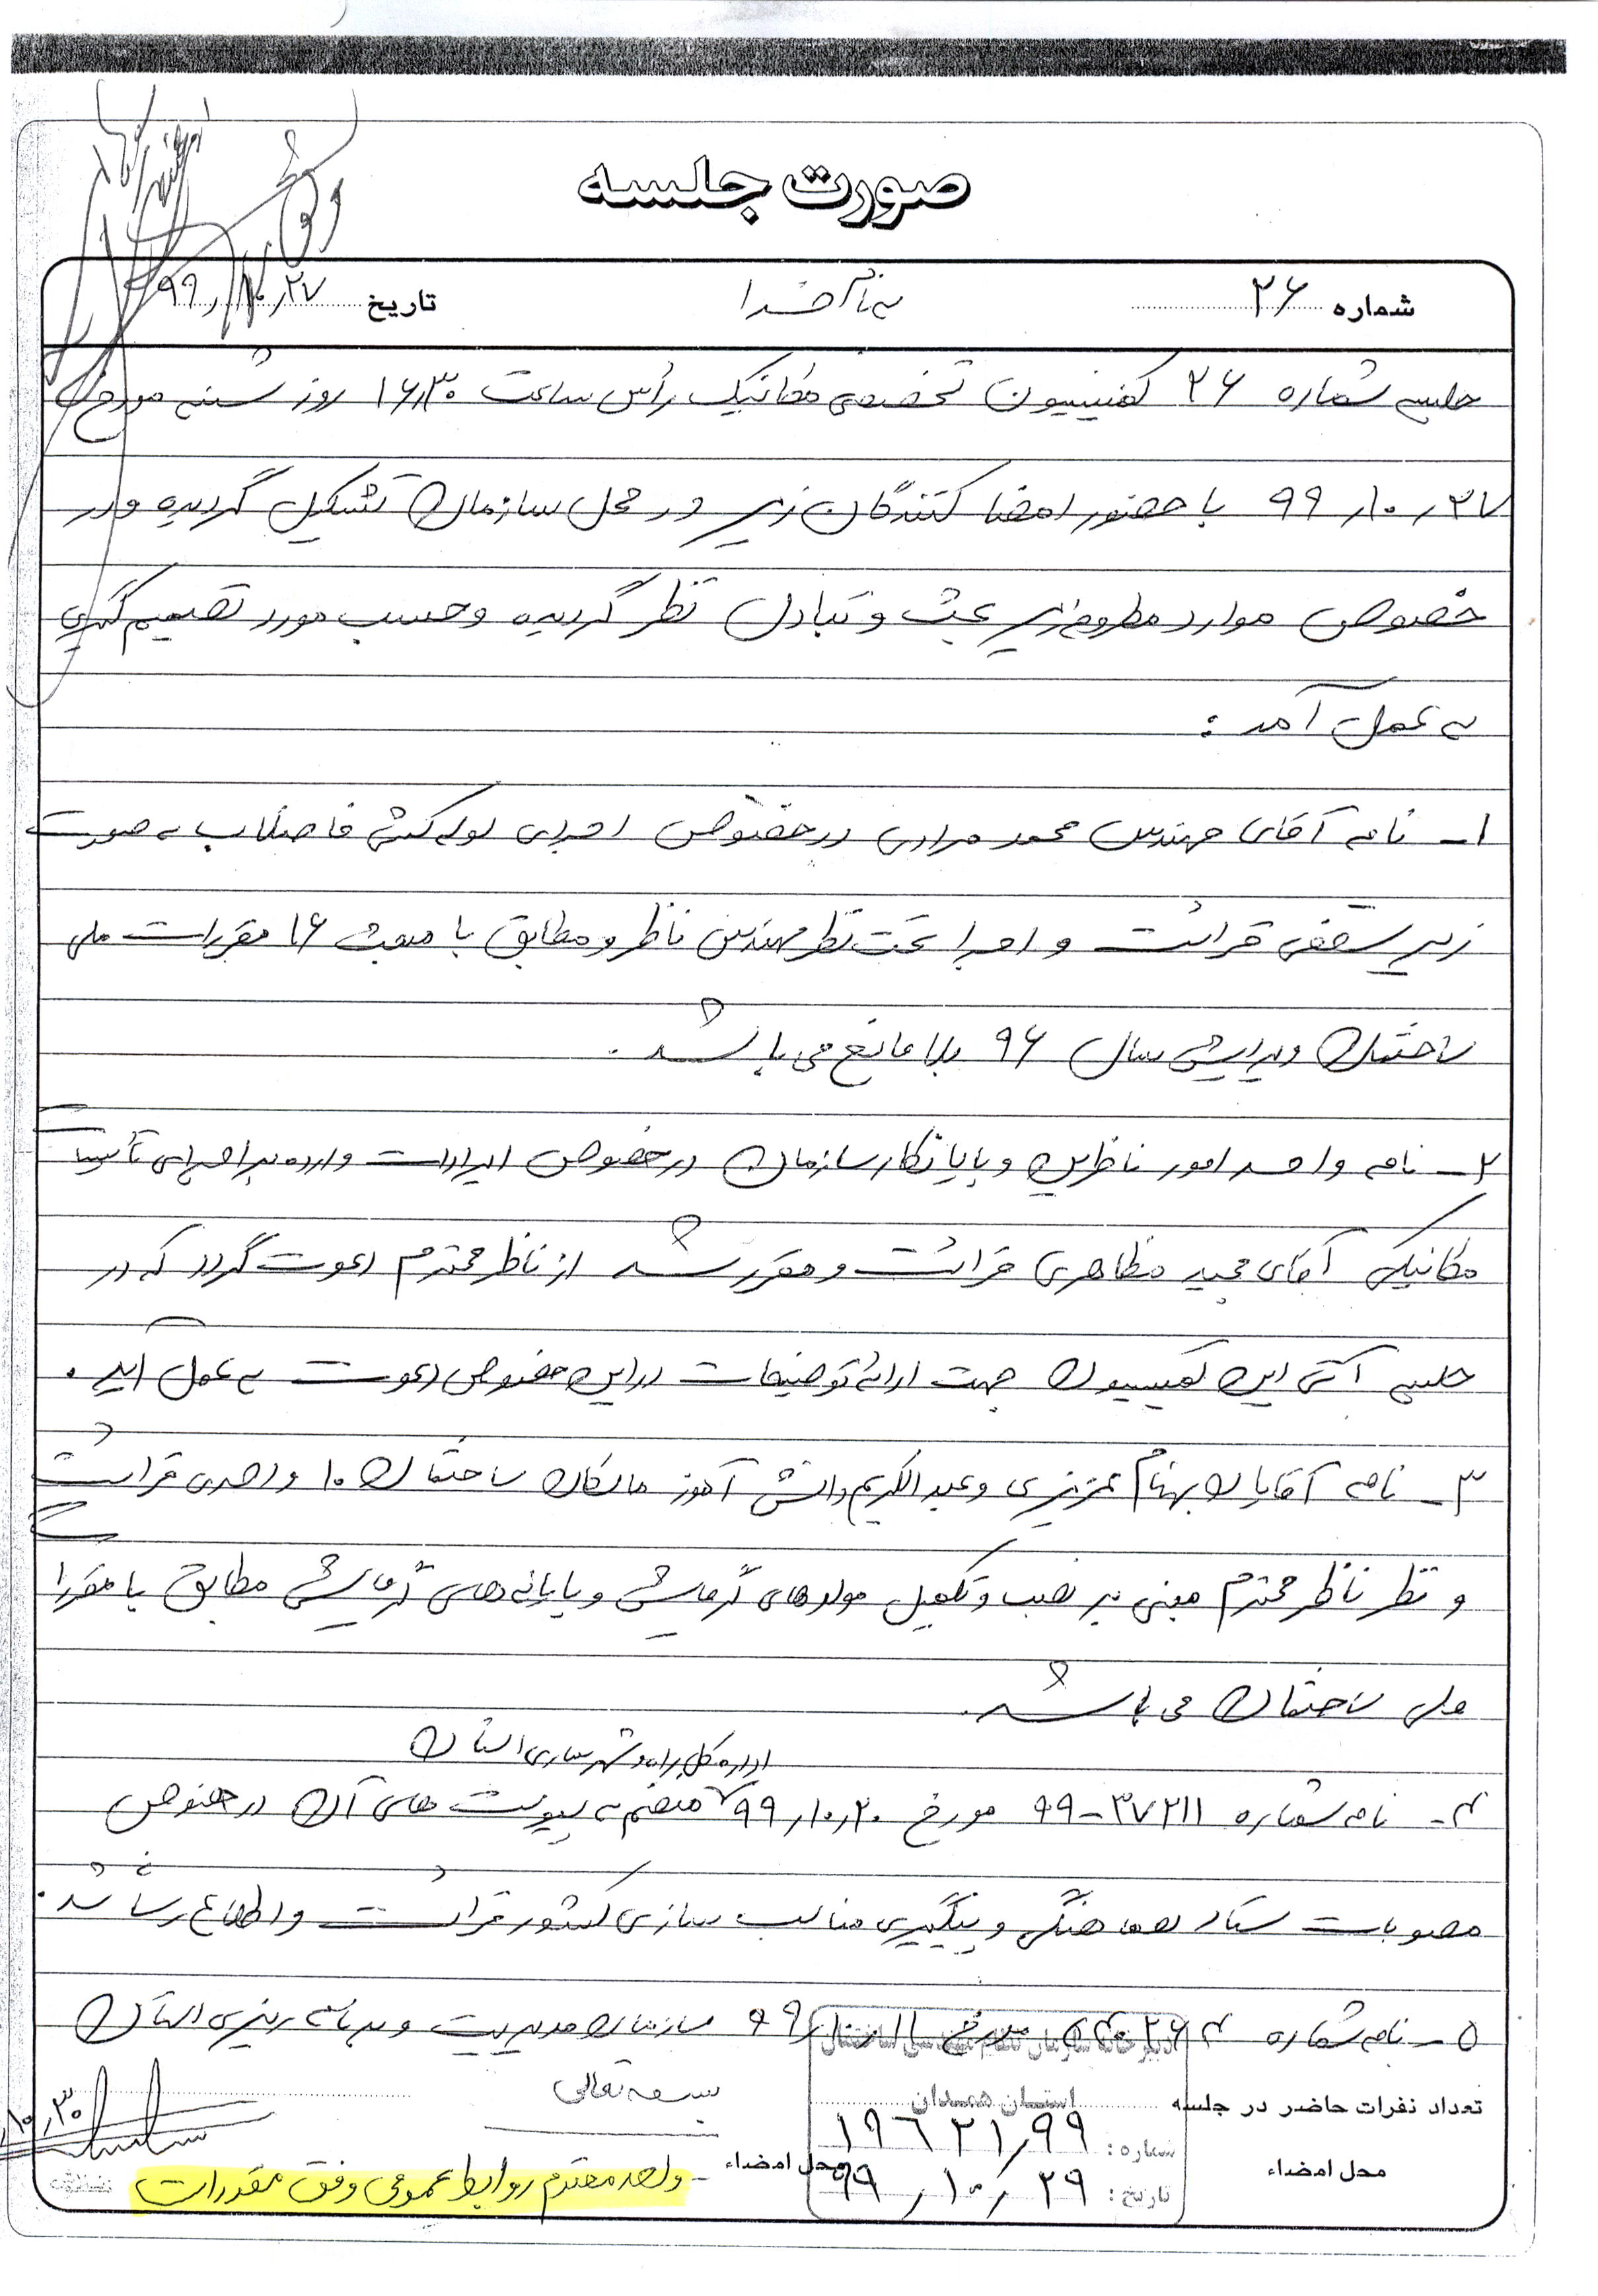 صورت جلسه
شماره ۲۶
به نام خدا
تاریخ ۹۹/۱۰/۲۷
جلسه شماره ۲۶ کمیسیون تخصصی مکانیک رأس ساعت ۱۶٫۳۰ روز شنبه مورخ
۹۹/۱۰/۲۷ با حضور امضا کنندگان زیر در محل سازمان تشکیل گردیده و در
خصوص موارد مطروحه زیر بحث و تبادل نظر گردیده و حسب مورد تصمیم گیری
به عمل آمد :
۱- نامه آقای مهندس محمد مرادی در خصوص اجرای لوله کشی فاضلاب به صورت
زیر سقفی قرائت و اجرا تحت نظر مهندس ناظر و مطابق با مبحث ۱۶ مقررات ملی
ساختمان ویرایش سال ۹۶ بلامانع می باشد .
۲- نامه واحد امور ناظرین و پایانکار سازمان در خصوص ایرادات وارده بر اجرای تأسیسات
مکانیک آقای مجید مظاهری قرائت و مقرر شد از ناظر محترم دعوت گردد که در
جلسه آتی این کمیسیون جهت ارائه توضیحات در این خصوص دعوت به عمل آید .
۳- نامه آقایان بهنام عزیزی و عبدالکریم دانش آموز مالکان ساختمان ۱۰ واحدی قرائت
و نظر ناظر محترم مبنی بر نصب و تکمیل مولدهای گرمایشی و پایانه های گرمایشی مطابق با مقررات
ملی ساختمان می باشد.
اداره کل راه و شهرسازی استان
۴- نامه شماره ۹۹-۳۷۲۱۱ مورخ ۹۹/۱۰/۲۰ منضم به پیوست های آن در خصوص
مصوبات ستاد هماهنگی و پیگیری مناسب سازی کشور قرائت و اطلاع رسانی شد.
۵- نامه شماره مورخ سازمان مدیریت و برنامه ریزی استان
تعداد نفرات حاضر در جلسه
استان همدان
بسمه تعالی
شماره: ۱۹۶۲۱٫۹۹
تاریخ: ۹۹/۱۰/۲۹
محل امضاء
محل امضاء
- واحد محترم روابط عمومی وفق مقررات